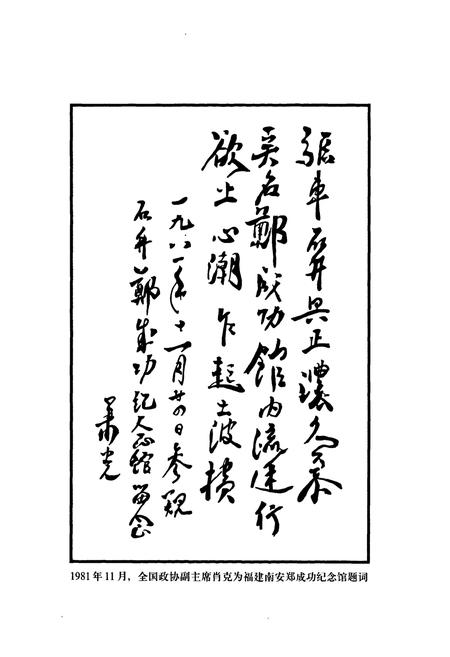 驱車石井兴正濃久慕
英名鄭成功館内流連行
欲止心潮乍起波横
一九八一年十一月廿四日参観
石井鄭成功纪念館留念
萧克
1981年11月，全国政协副主席肖克为福建南安郑成功纪念馆题词